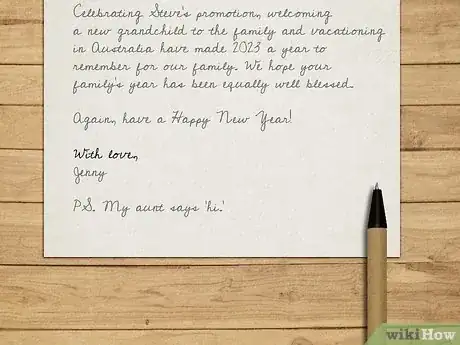 Celebrating Steve's promotion, welcoming
a new grandchild to the family and vacationing
in Australia have made 2023 a year to
remember for our family. We hope your
family's year has been equally well blessed.
Again, have a Happy New Year!
With love,
Jenny
P.S. My aunt says 'hi.'
wikiHow